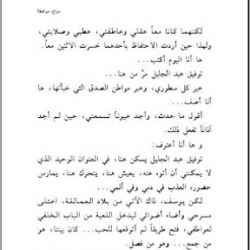 لكنهما كانا معاً عقلي وعاطفتي، عطبي وصلابتي،
ولهذا حين أردت الاحتفاظ بأحدهما خسرت الاثنين معاً.
ها أنا اليوم أكتب...
توفيق عبد الجليل مرّ من هنا...
عبر كل سطوري، وعبر مواطن الصدق التي خبأتها، ها
أنا أصف...
أقول ما حدث، وأجد عيوناً تسمعني، حين لم أجد
آذاناً تفعل ذلك.
و ها أنا أعترف:
توفيق عبد الجليل يسكن هنا، في العنوان الوحيد الذي
لا يمكنني أن أتوه عنه، يعيش هنا، يتحرك هنا، يمارس
حضوره العذب في دمي وفي ألمي...
لكن يوسف، ذاك الآتي من بلاد العمالقة، اعتلى
مسرحي وأضاء أضوائي ليدخل اللعبة من الباب الخلفي
لعواطفي، فتح طريقاً لم أتوقعها للحب... كان بيتنا، هو
من جمع... وهو من فصل.